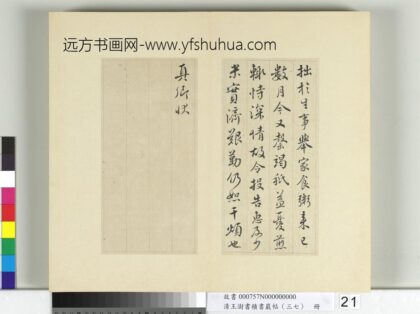 远方书画网-www.yfshuhua.com
拙於生事舉家食粥来已
數月今又罄竭祗益憂煎
輒恃深情故令投告惠及少
米實濟艱勤仍恕干煩也
真卿狀
故書 000757N000000000
清王澍書積書巖帖(三七) 冊
21